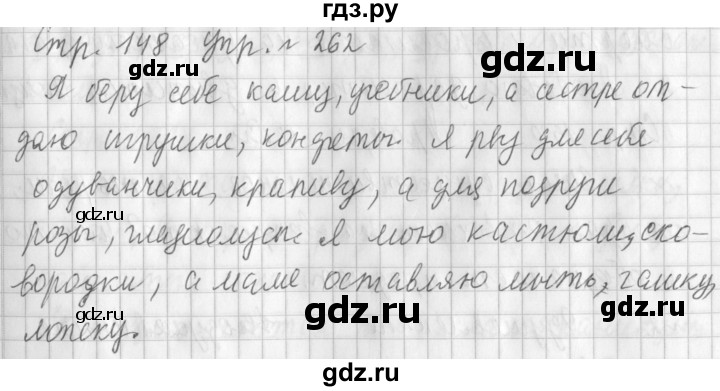 гдз.ру
Стр. 148 упр. № 262
gdz.ru gdz.ru
Я беру себе кашу, учебники, а сестре от-
даю игрушки, конфеты. Я рву для себя
gdz.ru gdz.ru
одуванчики, крапиву, а для подруги
gdz.ru gdz.ru
розы, гладиолусы. Я мою кастюли, ско-
вородки, а маме оставляю мыть, чашку,
gdz.ru gdz.ru
ложку.
gdz.ru